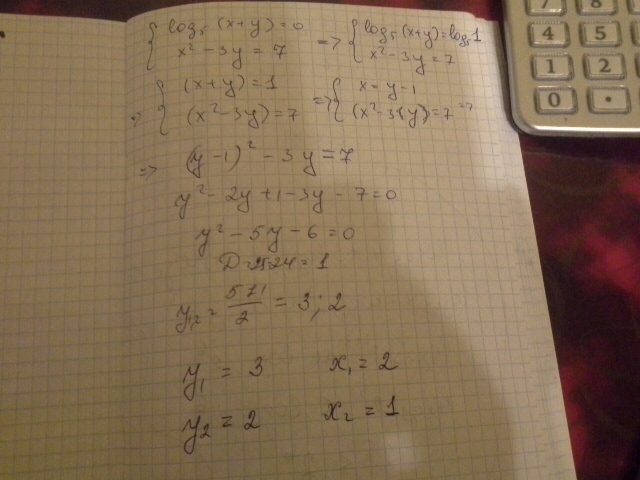 { log₅ (x+y) = 0 => { log₅ (x+y) = log₅ 1
x² - 3y = 7 x² - 3y = 7
=> { (x+y) = 1 => { x = y - 1
(x² - 3y) = 7 (x² - 3(y)) = 7 =>
=> (y - 1)² - 3y = 7
y² - 2y + 1 - 3y - 7 = 0
y² - 5y - 6 = 0
D = 25-24 = 1
y₁,₂ = (5±1)/2 = 3; 2
y₁ = 3 x₁ = 2
y₂ = 2 x₂ = 1
7 8
4 5
1 2
0 •